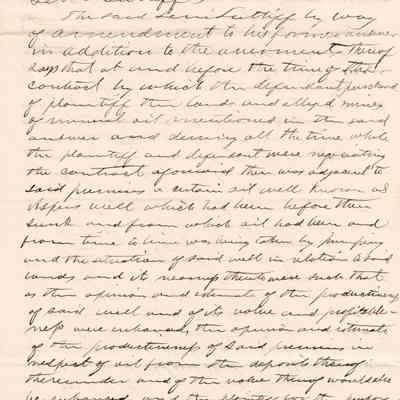 The said Levi Sutliff by way
of amendment to his former answer
in addition to the amendments thereof
says that at and before the time of the
contract by which the defendant purchased
of plaintiff the lands and alleged mines
of mineral oil mentioned in the said
answer and during all the time while
the plaintiff and defendant were negotiating
the contract aforesaid there was adjacent to
said premises a certain oil well known as
well which had been before then
sunk and from which oil had been and
from time to time was being taken by pumping
and the situation of said well in relation to said
lands and its nearness thereto were such that
as the opinion and estimate of the productiveness
of said well and of its value and profitable-
ness were enhanced, the opinion and estimate
of the productiveness of said premises in
respect of oil from the deposits thereof
thereunder and of the value thereof would also
be enhanced and the plaintiff for the purpose